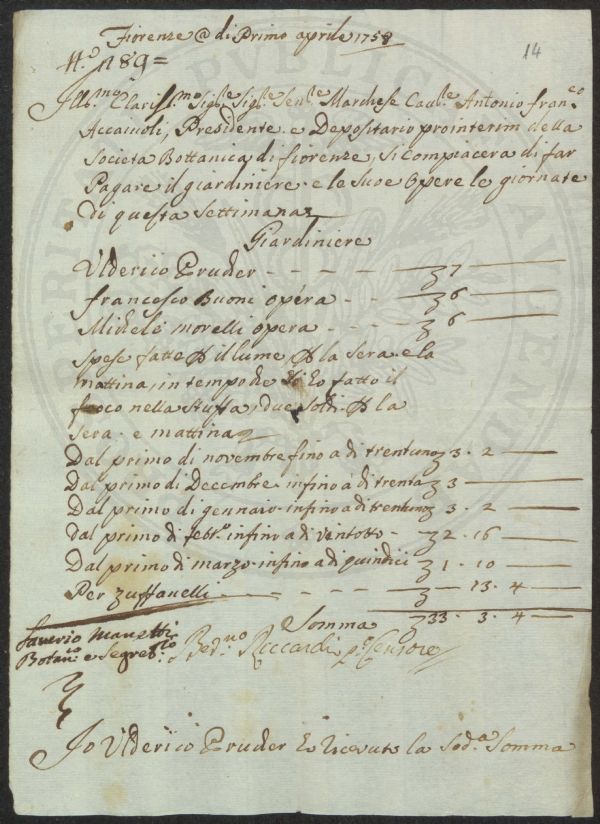 Fiorenze @ di Primo aprile 1758
14
N.º 189=
Ill.mo Clariss.mo Sig.re Sig.re Sen.re Marchese Cav.re Antonio fran.co
Accaivoli, Presidente e Depositario prointerim della
Società Bottanica di fiorenze, si compiacera di far
Pagare il giardiniere e le sue Opere le giornate
Di questa Settimana
Giardiniere
Ulderico Pruder - - - - 7
francesco Buoni opera - - 6
Michele morelli opera - - 6
Spese fatte P il lume P la Sera e la
mattina in tempo che io ho fatto il
foco nella Stuffa, due Soldi P la
Sera e mattina
Dal primo di novembre fino a di trentuno 3. 2
Dal primo di Decembre infino a di trenta 3
Dal primo di gennaio infino a di trentuno 3. 2
Dal primo di feb.ro infino a di ventotto - 2. 16
Dal primo di marzo infino a di quindici 1. 10
Per zuffanelli - - - - 13. 4
Somma 33. 3. 4
Saverio Manetti
Botan.co e Segret.rio
Bed.no Riccardi p.o Censore
Io Ulderico Pruder ho ricevuto la Sod.a Somma